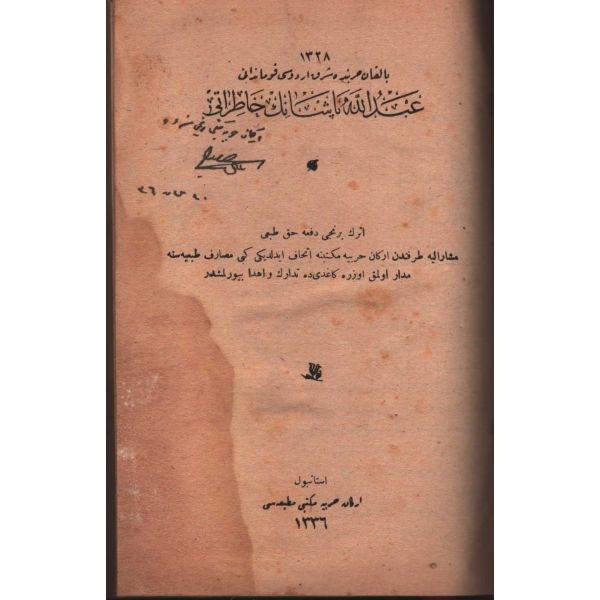 ١٣٢٨
بالقان حربنده شرق اردوسی قوماندانی
عبدالله پاشانك خاطراتی
اركان حربیه
اثرك برنجی دفعه حق طبعی
مشارالیه طرفندن اركان حربیه مكتبنه اتحاف ایدلدیكی كبی مصارف طبعیه سنه
مدار اولمق اوزره كاغدی ده تدارك و اهدا بیورلمشدر
استانبول
اركان حربیه مكتبی مطبعه سی
١٣٣٦